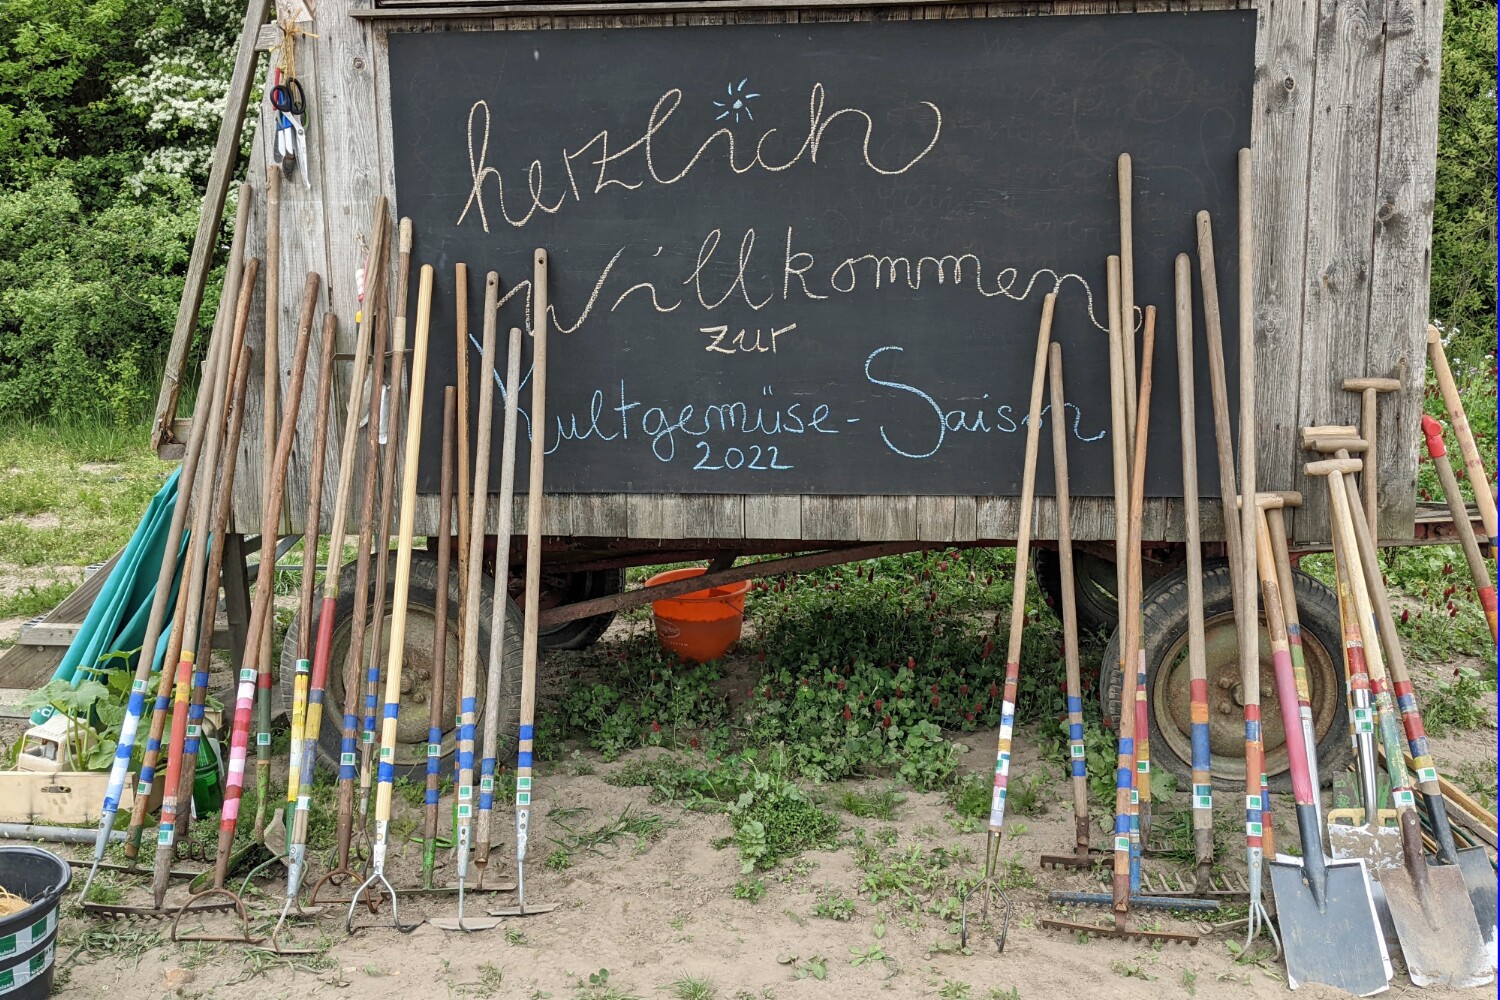 herzlich
Willkommen
zur
Kultgemüse-Saison
2022